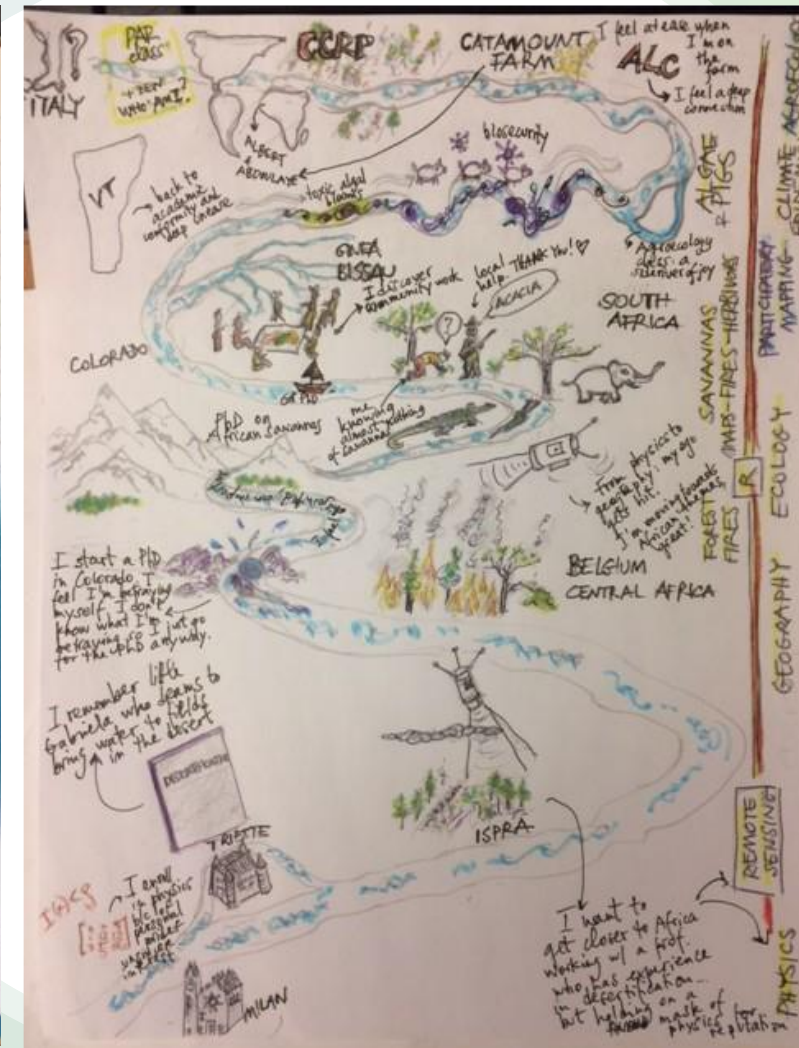 ITALY
PAR
class
THEN
WHO AM I?
CCRP
CATAMOUNT
FARM
I feel at ease when
I'm on
the
farm
ALC
I feel a deep
connection
ALBERT
&
ABDULAYE
VT
back to
academic
conformity and
deep unease
toxic algal
blooms
biosecurity
Agroecology
class: a
of joy
GUINEA
BISSAU
I discover
community work
local
help. THANK YOU! ♡
ACACIA
?
SOUTH
AFRICA
COLORADO
PhD on
African savannas
me
knowing
almost nothing
of savannas
From physics to
geography: my ego
gets hit.
I'm moving towards
African themes,
great!
BELGIUM
CENTRAL AFRICA
I start a PhD
in Colorado. I
feel I'm betraying
myself, I don't
know what I'm
betraying so I just go
for the PhD anyway.
I remember little
Gabriela who dreams to
bring water to fields
in the desert
TRIESTE
ISPRA
I enroll
in physics
b/c of
personal
interest
MILAN
I want to
get closer to Africa
working w/ a prof.
who has experience
in desertification...
but holding on a
mask of
physics for
reputation
ALGAE
& PIGS
SAVANNAS
MAPS-FIRES-HERBIVORES
FOREST
FIRES
R
PARTICIPATORY
MAPPING-CLIMATE
ECOLOGY
GEOGRAPHY
REMOTE
SENSING
PHYSICS